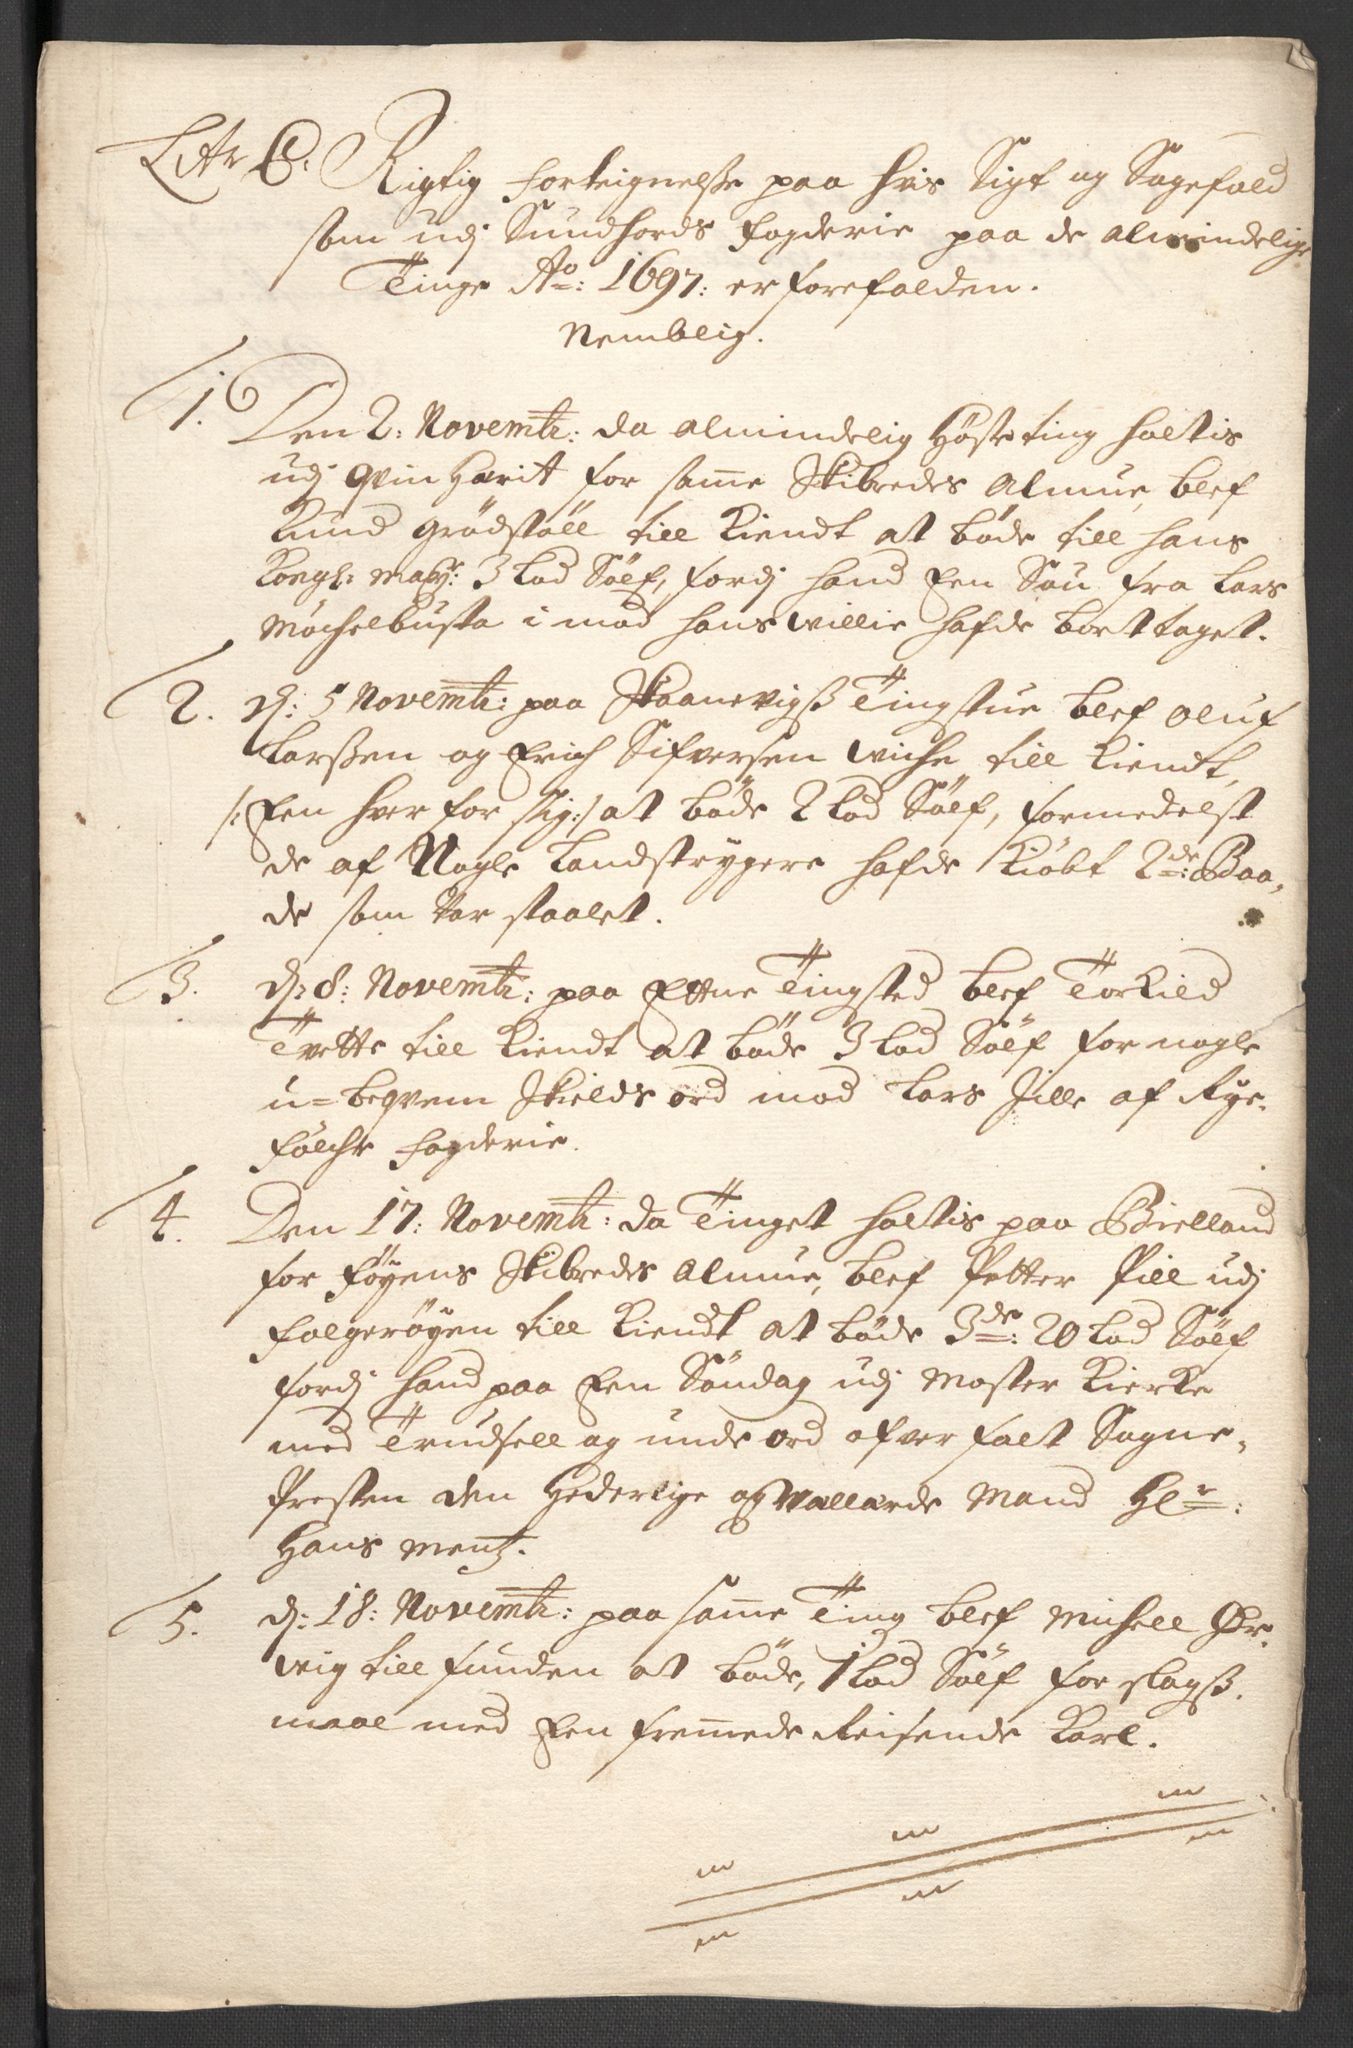 Litr C. Rigtig Forteignelse paa hvis Sigt og Sagefald
som udj Sundhords fogderie paa de almindelige
Tinge Ao: 1697: er forefalden.
Nemblig.
1. Den 2: Novembr: da almindelig Høste ting holtis
udj Qvinhærit for samme Skibredes Almue, blef
Knud Grødstøll till Kiendt at bøde till hans
Kongl: mayt: 3 Lod Sølf, fordj hand Een Søu fra Lars
Møchelbusta i mod hans willie hafde bort taget.
2. d: 5 Novembr: paa Skaanevigs Tingstue blef Oluf
Larssen og Erich Sifversen wiche till Kiendt,
/: Een hver for sig :/ at bøde 2 Lod Sølf, formedelst
de af Nogle Landstrygere hafde Kiøbt 2de: Baa,
de som var staalet.
3. d: 8: Novembr: paa Ettne Tingsted blef Torkild
Tvette till Kiendt at bøde 3 Lod Sølf for nogle
u=beqvem Skields ord mod Lars Jille af Rye,
fölche fogderie.
4. Den 17: Novembr: da Tinget holtis paa Bielland
for Føyens Skibredes Almue, blef Petter Pill udj
Folgerøyen till Kiendt at bøde 3de: 20 Lod Sølf
fordj hand paa Een Søndag udj Moster Kierke
med Trudsell og unde ord ofver falt Sogne,
Presten den Hederlige og Wallærde Mand Hr:
Hans Mentz.
5. d: 18: Novembr: paa samme Ting blef Michell Ør,
wig till funden at bøde, 1 Lod Sølf for slags,
maal med Een fremmede Reisende Karl.